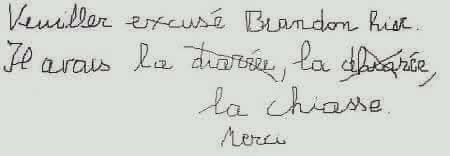 Veuiller excusé Brandon hier.
Il avais la diarée, la dhiarée,
la chiasse.
Merci